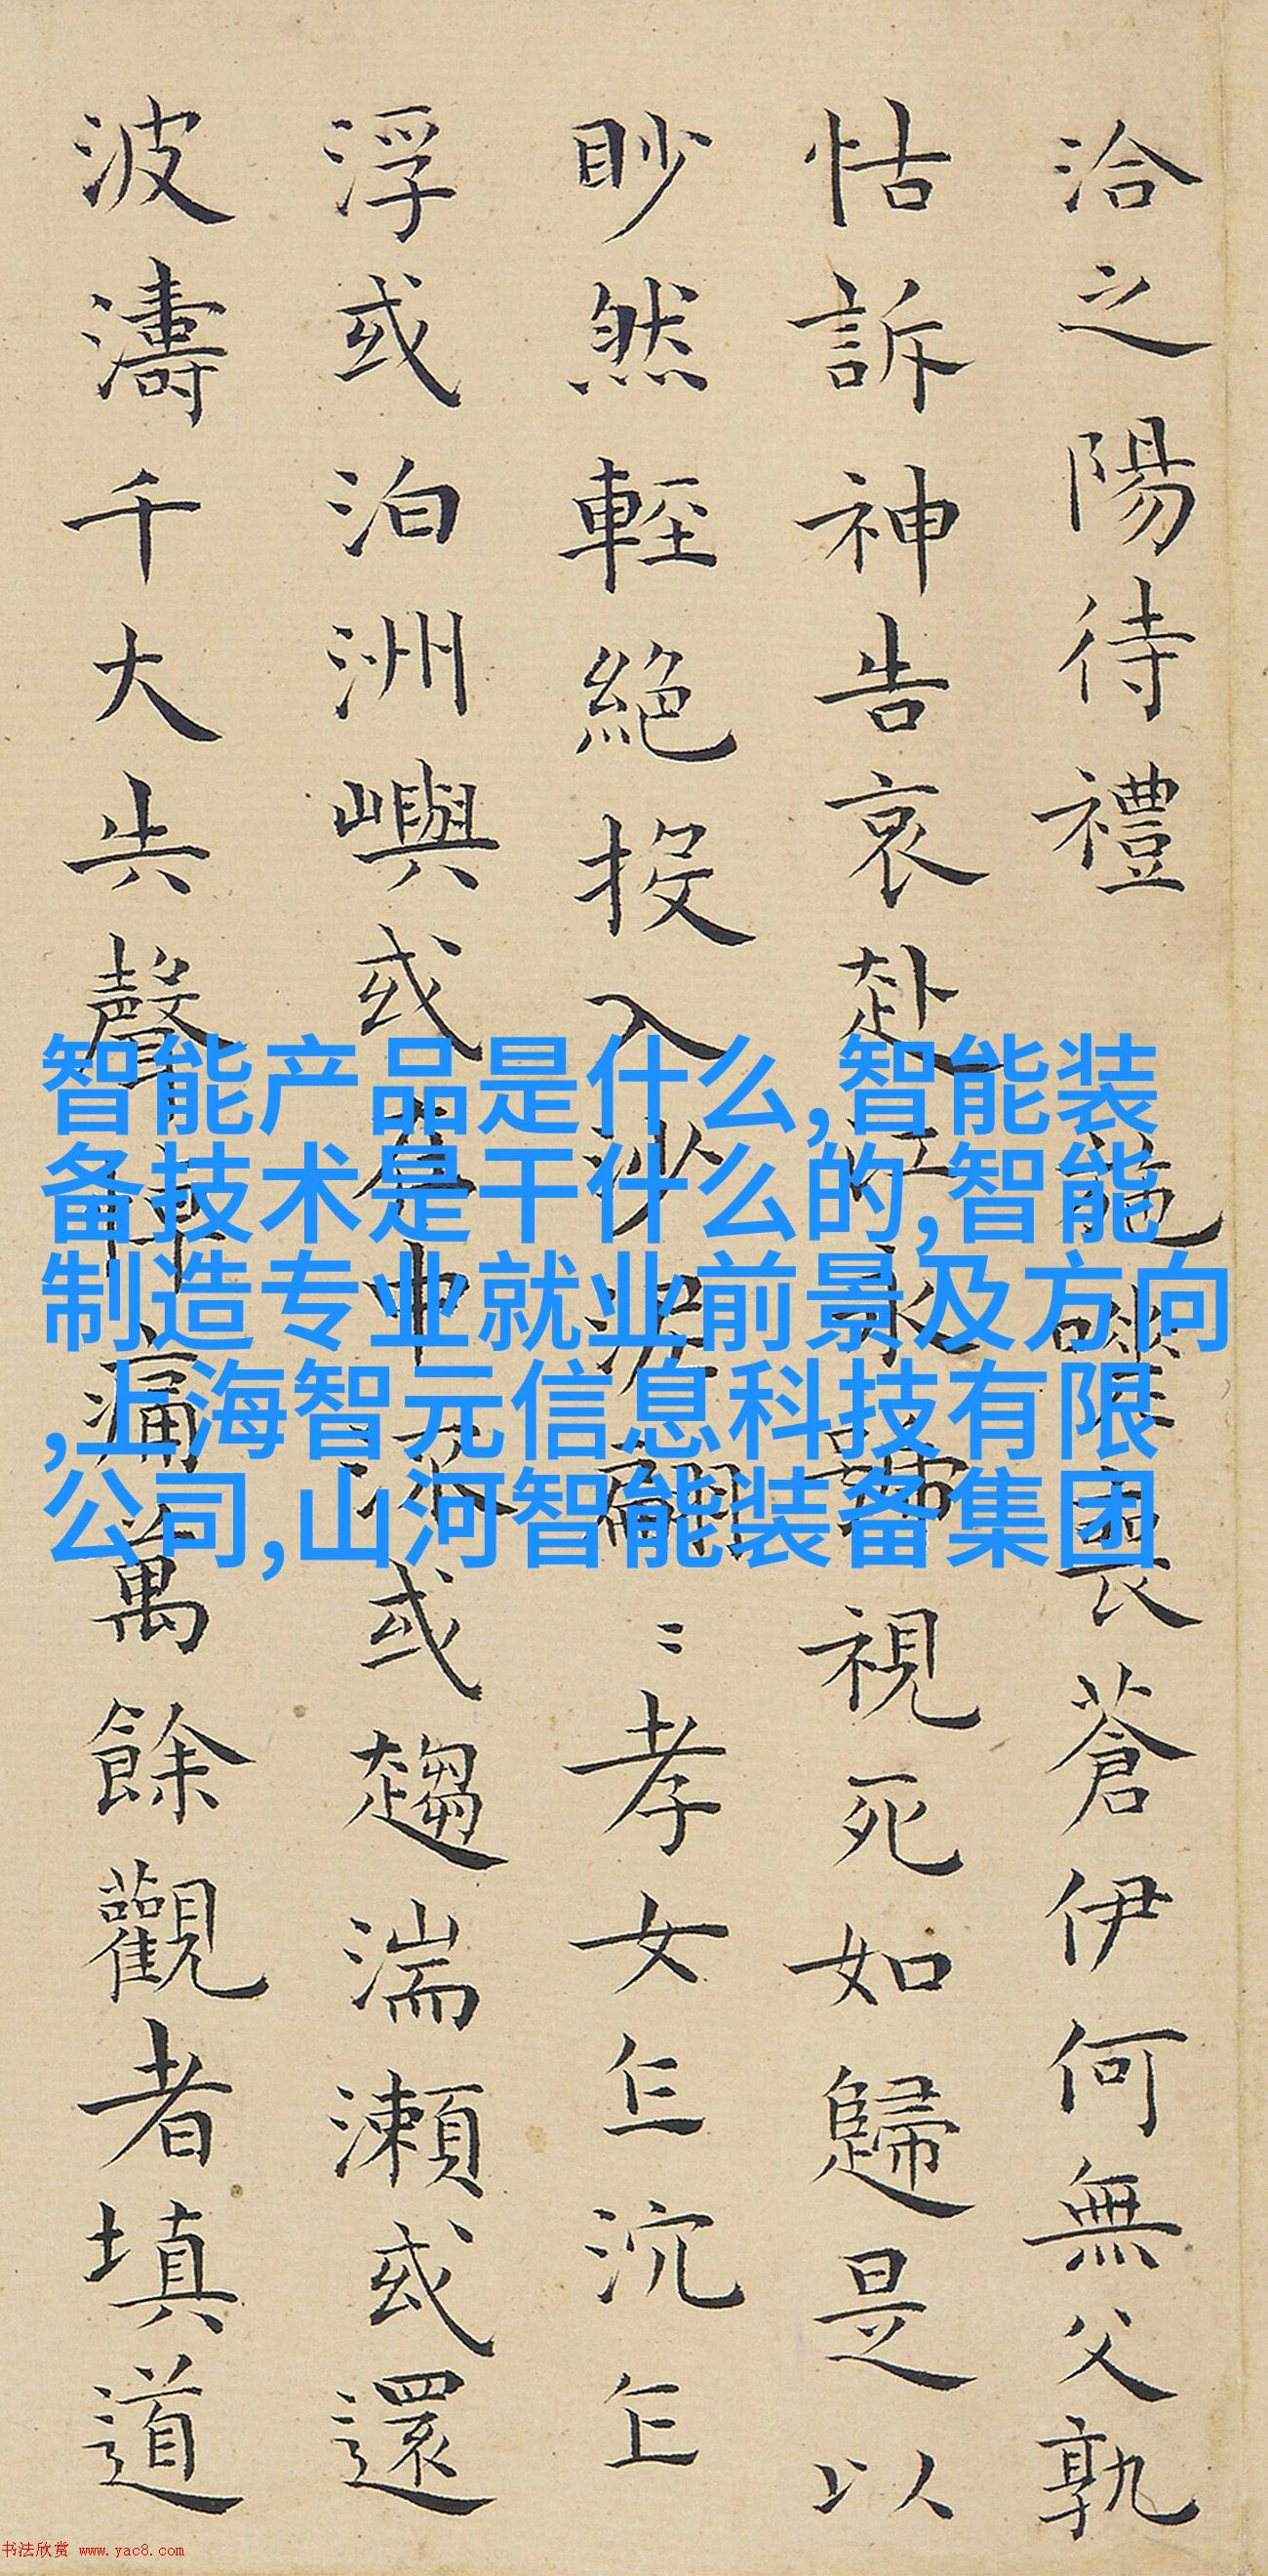 洽之陽待禮 施嗟喪蒼伊何無父孰
怙訴神告哀赴江永視死如歸是以
眇然輕絕投入沙泥翩〻孝女乍沉乍
浮或泊洲嶼或在中流或趨湍瀨或還
波濤千大失聲悼痛萬餘觀者填道
智能产品是什么,智能装
备技术是干什么的,智能
制造专业就业前景及方向
,上海智元信息科技有限
公司,山河智能装备集团
书法欣赏 www.yac8.com